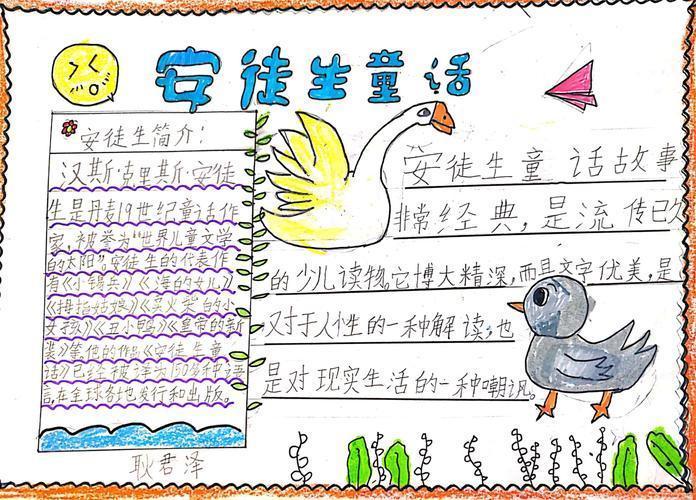 安徒生童话
安徒生简介：
汉斯·克里斯·安徒
生是丹麦19世纪童话作
家，被誉为“世界儿童文学
的太阳”。安徒生的代表作
有《小锡兵》《海的女儿》
《拇指姑娘》《卖火柴的小
女孩》《丑小鸭》《皇帝的新
装》等，他的作《安徒生童
话》已经被译为150多种语
言，在全球各地发行和出版。
耿君泽
安徒生童话故事
非常经典，是流传已久
的少儿读物。它博大精深，而且文字优美，是
又对于人性的一种解读，也
是对现实生活的一种嘲讽。